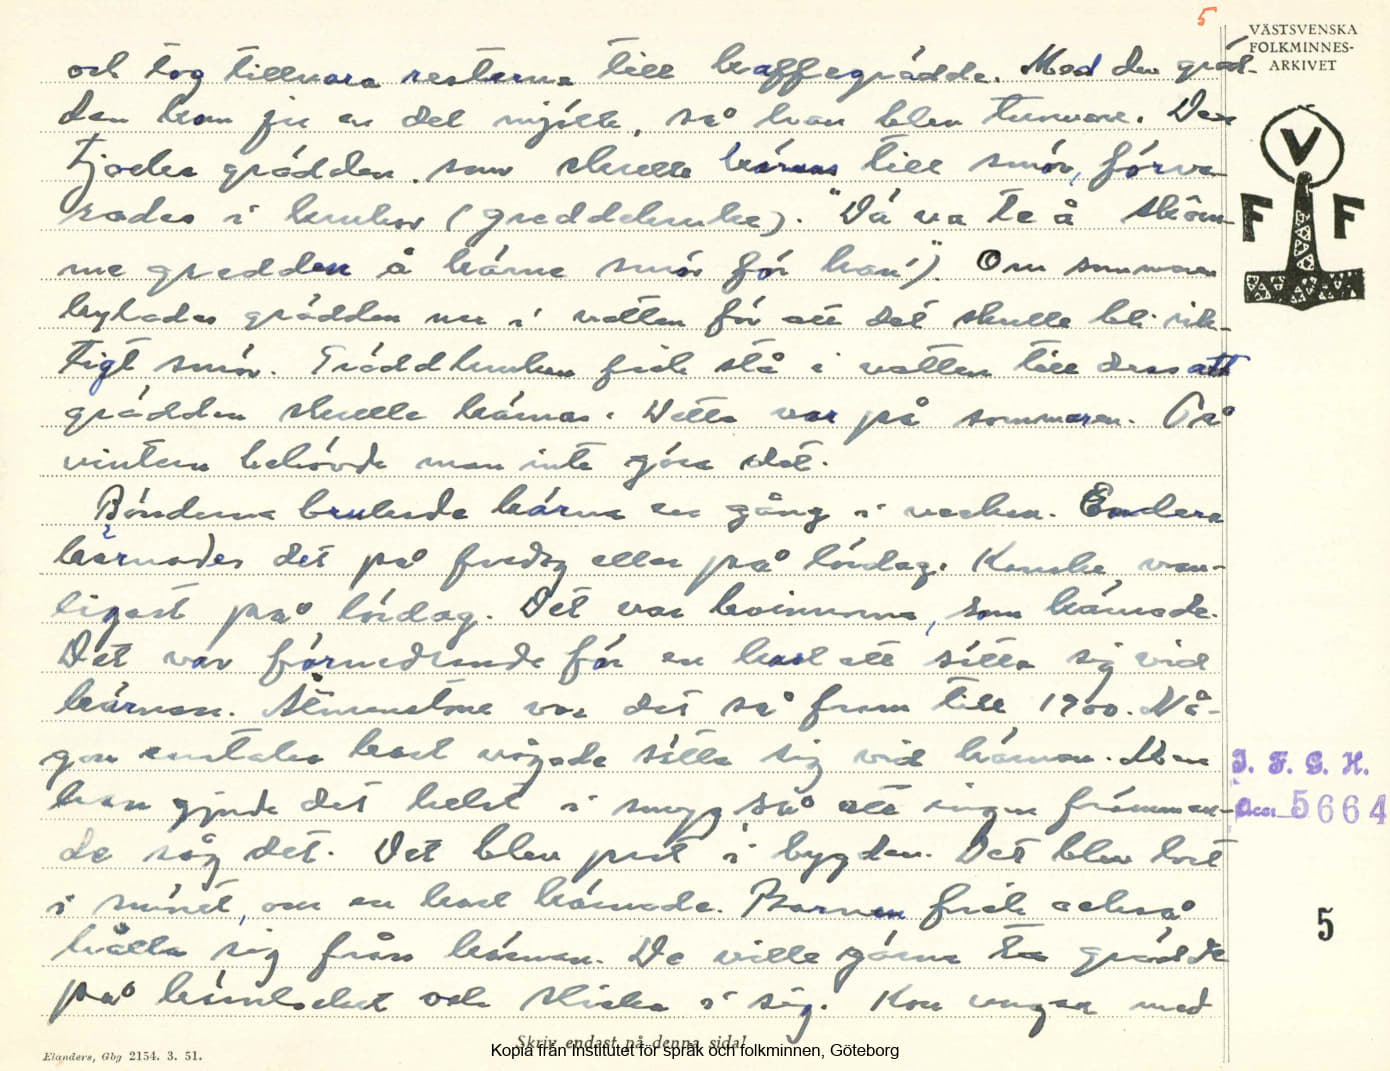 5
VÄSTSVENSKA
FOLKMINNES-
ARKIVET
och tog tillvara resterna till kaffegrädde. Med den gräd-
den kom ju en del mjölk, så han blev tunnare. Den
tjocka grädden som skulle kärnas till smör, förva-
rades i krukor (greddekruka). "Dä va te å skôm-
me gredden å kärne smör för han"). Om sommaren
kylades grädden ner i vatten för att det skulle bli rik-
tigt smör. Gräddkrukan fick stå i vatten till dess att
grädden skulle kärnas. Detta var på sommaren. På
vintern behövde man inte göra det.
Bönderna brukade kärna en gång i veckan. Endera
kärnades det på fredag eller på lördag. Kanske van-
ligast på lördag. Det var kvinnorna, som kärnade.
Det var förnedrande för en karl att sätta sig vid
kärnan. Åtminstone var det så fram till 1900. Nå-
gon enstaka karl vågade sätta sig vid kärnan. Men
han gjorde det helst i smyg så att ingen främman-
de såg det. Det blev prat i bygden. Det blev tort
i smöret, om en karl kärnade. Barnen fick också
hålla sig från kärnan. De ville gärna ta grädde
på kärnlocket och slicka i sig. Kom ungar med
V
F F
I. F. G. H.
Acc. 5664
5
Skriv endast på denna sida!
Elanders, Gbg 2154. 3. 51.
Kopia från Institutet för språk och folkminnen, Göteborg